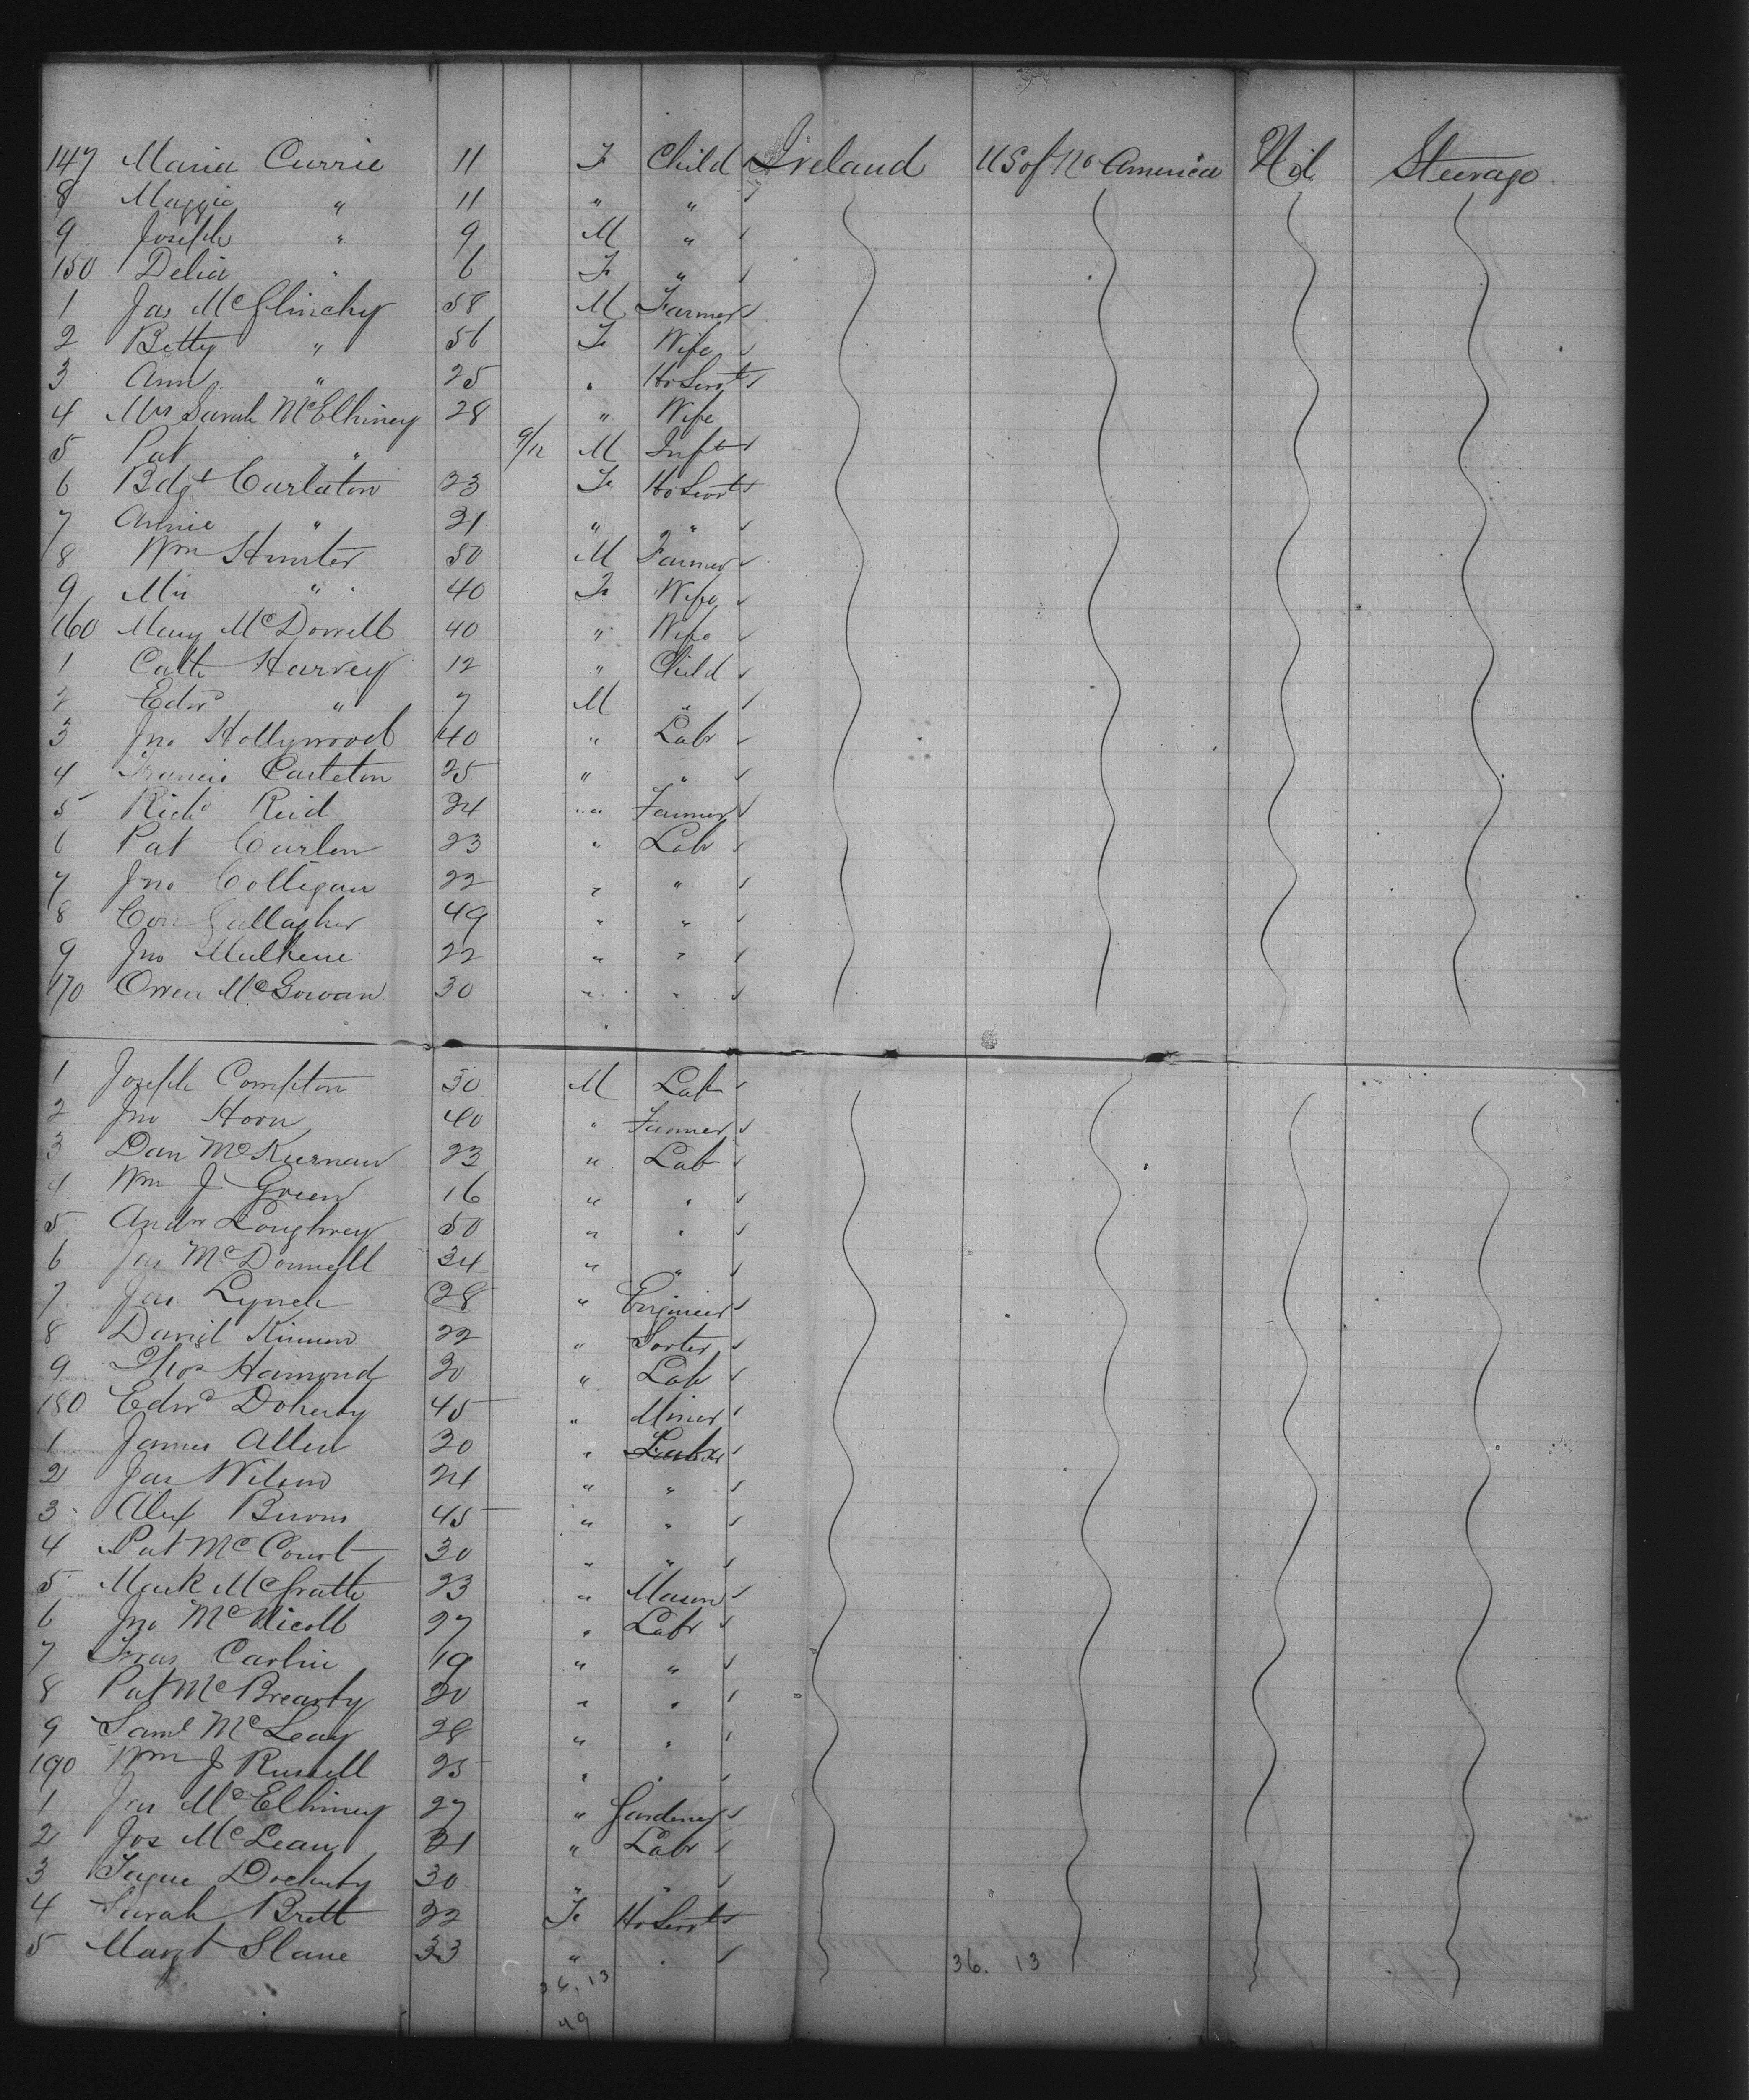 147 Maria Currie 11 F Child Ireland US of No America Nil Steerage
8 Maggie " 11 " "
9 Joseph " 9 M "
150 Delia " 6 F "
1 Jas McGlinchy 58 M Farmer
2 Betty " 56 F Wife
3 Ann " 25 " Ho Servt
4 Mrs Sarah McElhiney 28 " Wife
5 Pat " 9/12 M Inft
6 Bdgt Carlaton 23 F Ho Servt
7 Annie " 21 " "
8 Wm Hunter 50 M Farmer
9 Mrs " 40 F Wife
160 Mary McDowell 40 " Wife
1 Cath Harvey 12 " Child
2 Edwd " 7 M "
3 Jno Hollywood 40 " Labr
4 Francis Carleton 25 " "
5 Richd Reid 24 " Farmer
6 Pat Carlen 23 " Labr
7 Jno Colligan 22 " "
8 Con Gallagher 49 " "
9 Jno 22 " "
170 Owen McGowan 30 " "
1 Joseph Compton 30 M Lab
2 Jno Horn 40 " Farmer
3 Dan McKiernan 23 " Lab
4 Wm J Green 16 " "
5 Andw Loughrey 50 " "
6 Jas McDonnell 34 " "
7 Jas Lynch 28 " Engineer
8 David 22 "
9 Thos Hamond 30 " Lab
180 Edwd Doherty 45 " Miner
1 James Allen 30 " Labr
2 Jas Wilson 24 " "
3 Alex Burns 45 " "
4 Pat McCourt 30 " "
5 Mark McGrath 23 " Mason
6 Jno McNicoll 27 " Labr
7 Fras Carlin 19 " "
8 Pat McBrearty 20 " "
9 Saml McLeay 28 " "
190 Wm J Russell 25 " "
1 Jas McElhiney 27 " Gardener
2 Jos McLean 21 " Labr
3 Docherty 30 " "
4 Sarah Brett 22 F Ho Servt
5 Margt Slane 33 " "
36. 13
36, 13
49